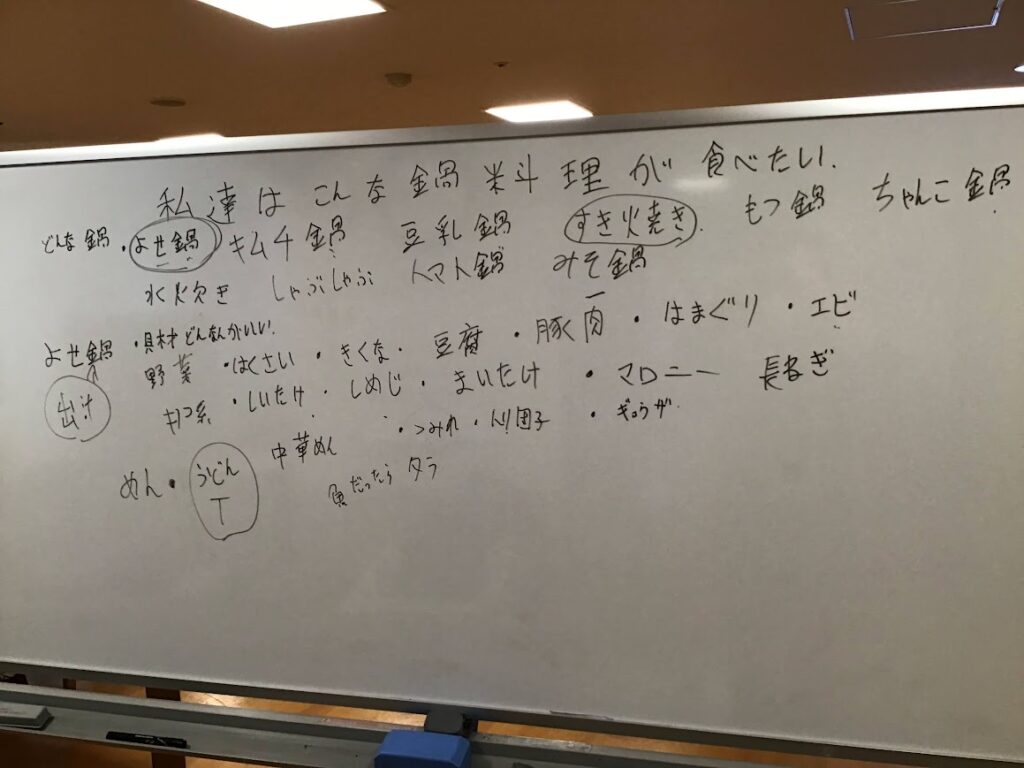 私達はこんな鍋料理が食べたい.
どんな鍋・よせ鍋 キムチ鍋 豆乳鍋 すき火焼き. もつ鍋 ちゃんこ鍋
水炊き しゃぶしゃぶ トマト鍋 みそ鍋
よせ鍋・具材どんなんがいい.
野菜・はくさい・きくな・豆腐・豚肉・はまぐり・エビ
出汁 キノコ系・しいたけ・しめじ・まいたけ・マロニー 長ねぎ
・つみれ・肉団子・ぎょうざ.
めん・うどん 中華めん
T
魚だったら タラ